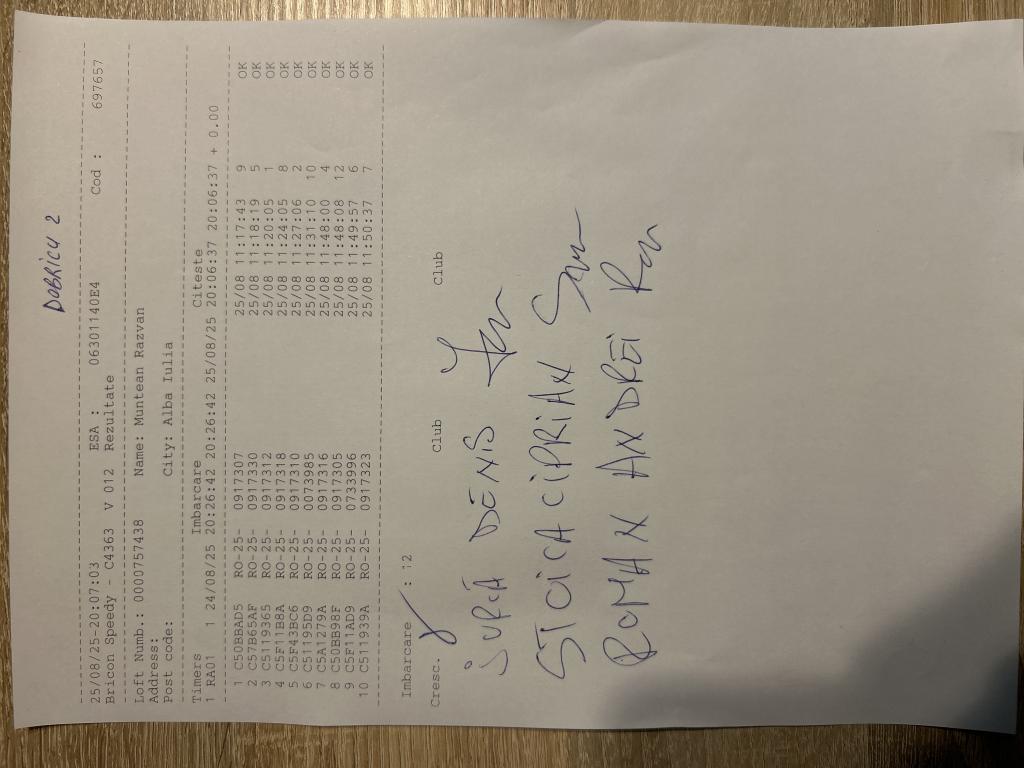 DOBRICU 2
25/08/25-20:07:03 ESA : 06301140E4 Cod : 697657
Bricon Speedy - C4363 V 012 Rezultate
Loft Numb.: 0000757438 Name: Muntean Razvan
Address:
Post code: City: Alba Iulia
Timers Imbarcare Citeste
1 RA01 1 24/08/25 20:26:42 20:26:42 25/08/25 20:06:37 20:06:37 + 0.00
1 C50BBAD5 RO-25- 0917307 25/08 11:17:43 9 OK
2 C57B65AF RO-25- 0917330 25/08 11:18:19 5 OK
3 C5119365 RO-25- 0917312 25/08 11:20:05 1 OK
4 C5F11B8A RO-25- 0917318 25/08 11:24:05 8 OK
5 C5F43BC6 RO-25- 0917310 25/08 11:27:06 2 OK
6 C51195D9 RO-25- 0073985 25/08 11:31:10 10 OK
7 C5A1279A RO-25- 0917316 25/08 11:48:00 4 OK
8 C50BB98F RO-25- 0917305 25/08 11:48:08 12 OK
9 C5F11AD9 RO-25- 0733996 25/08 11:49:57 6 OK
10 C511939A RO-25- 0917323 25/08 11:50:37 7 OK
Imbarcare : 12
Cresc. Club Club
JURCĂ DENIS
STOICA CIPRIAN
ROMAN ANDREI